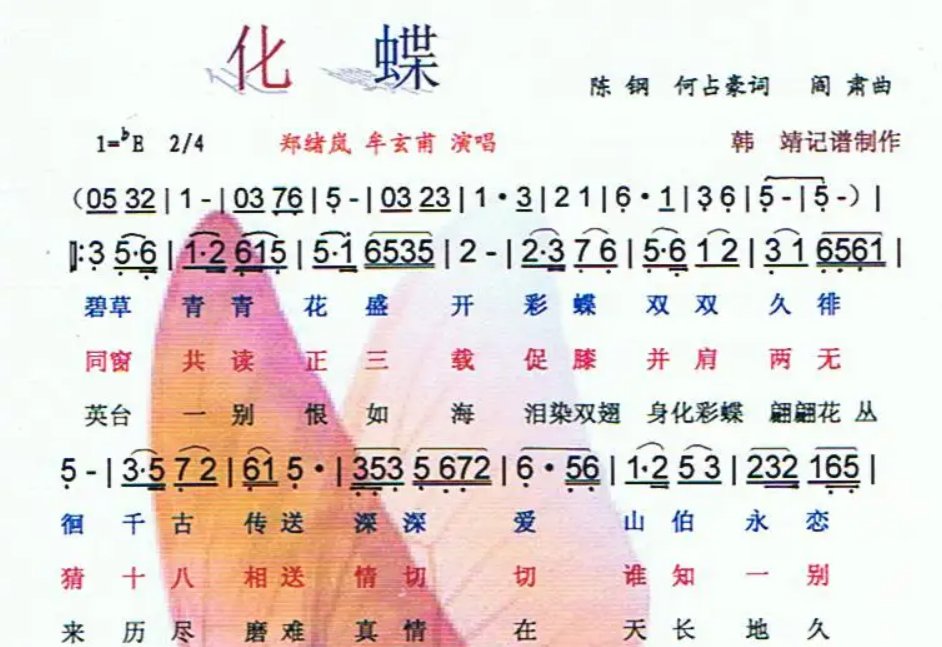 化 蝶
陈 钢 何占豪词 阎 肃曲
1=ᵇE 2/4 郑绪岚 牟玄甫 演唱 韩 靖记谱制作
(05 32 | 1 - | 03 76 | 5 - | 03 23 | 1 · 3 | 2 1 | 6 · 1 | 3 6 | 5 - | 5 - ) |
‖: 3 5·6 | 1·2 615 | 5·1 6535 | 2 - | 2·3 7 6 | 5·6 1 2 | 3 1 6561 |
碧草 青 青 花 盛 开 彩 蝶 双 双 久 徘
同窗 共 读 正 三 载 促 膝 并 肩 两 无
英台 一 别 恨 如 海 泪染双翅 身化彩蝶 翩翩花 丛
5 - | 3·5 7 2 | 61 5 · | 353 5 672 | 6 · 56 | 1·2 5 3 | 232 165 |
徊 千 古 传 送 深 深 爱 山 伯 永 恋
猜 十 八 相 送 情 切 切 谁 知 一 别
来 历 尽 磨 难 真 情 在 天 长 地 久